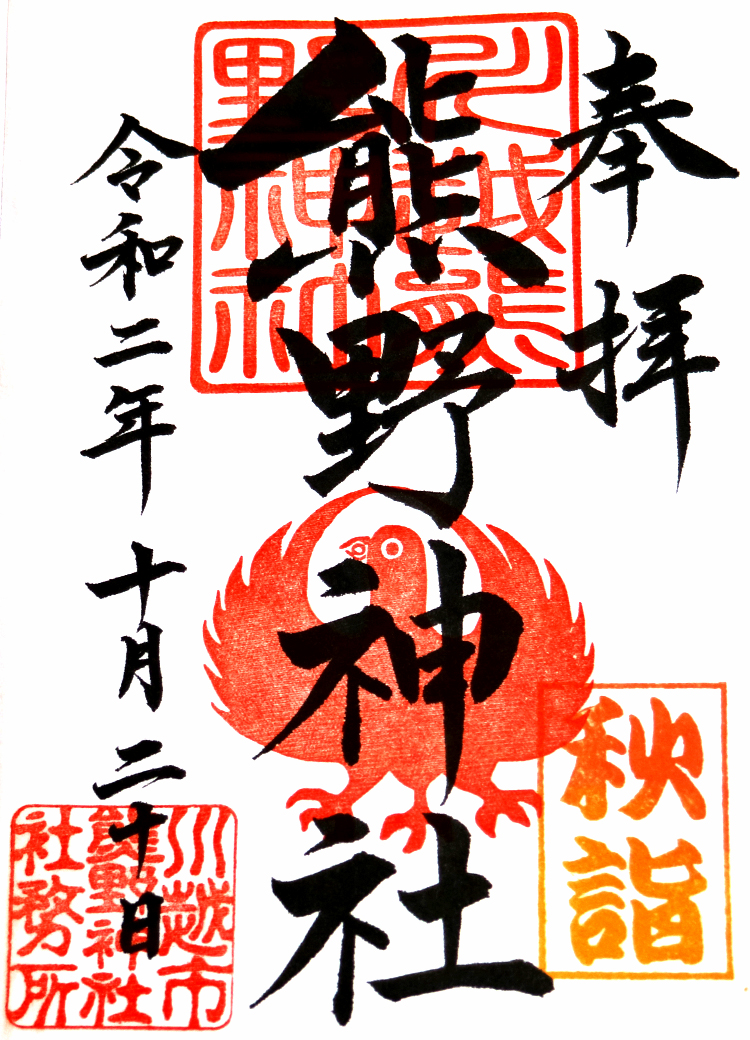 奉拝
川越熊野神社
熊野神社
秋詣
令和二年十月二十日
川越市
熊野神社
社務所